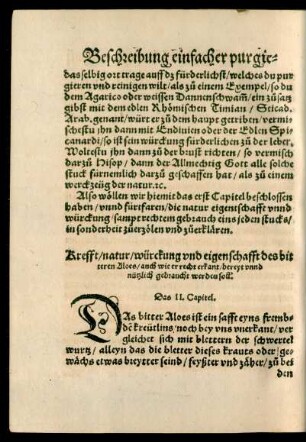 Beschreibung einfacher purgie-
das selbig ort trage auff dz fürderlichst/welches du pur
gieren vnd reinigen wilt/als zů einem Exempel/so du
dem Agarico oder weissen Dannenschwam̃/ ein zůsatz
gibst mit dem edlen Rhömischen Timian / Sticad.
Arab. genant/würt er zů dem haupt getriben/vermi
schestu jhn dann mit Endiuien oder der Edlen Spic
canardi/so ist sein würckung fürderlichen zů der leber.
Woltestu jhn dann zů der brust richten / so vermisch
darzů Disop / dann der Allmechtig Gott alle solche
stuck fürnemlich darzů geschaffen hat/ als zů einem
werckzeüg der natur.⁊c.
Also wöllen wir hiemit das erst Capitel beschlossen
haben/vnnd fürtfaren/die natur eigenschafft vnnd
würckung/sampt rechtem gebrauch eins jeden stucks/
in sonderheit zů erzölen vnd zů erklären.
Krefft/natur/würckung vnd eigenschafft des bit
teren Aloes/auch wie er recht erkant/bereyt vnnd
nützlich gebraucht werden soll.
Das II. Capitel.
DAs bitter Aloes ist ein safft eyns frembd-
dẽ kreütlins/noch bey vns vnerkant/ver
gleichet sich mit blettern der schwertel
wurtz/ alleyn das die bletter dieses krauts oder ge-
wächs etwas breytter seind/feyßter vnd zäher/zů bei
den